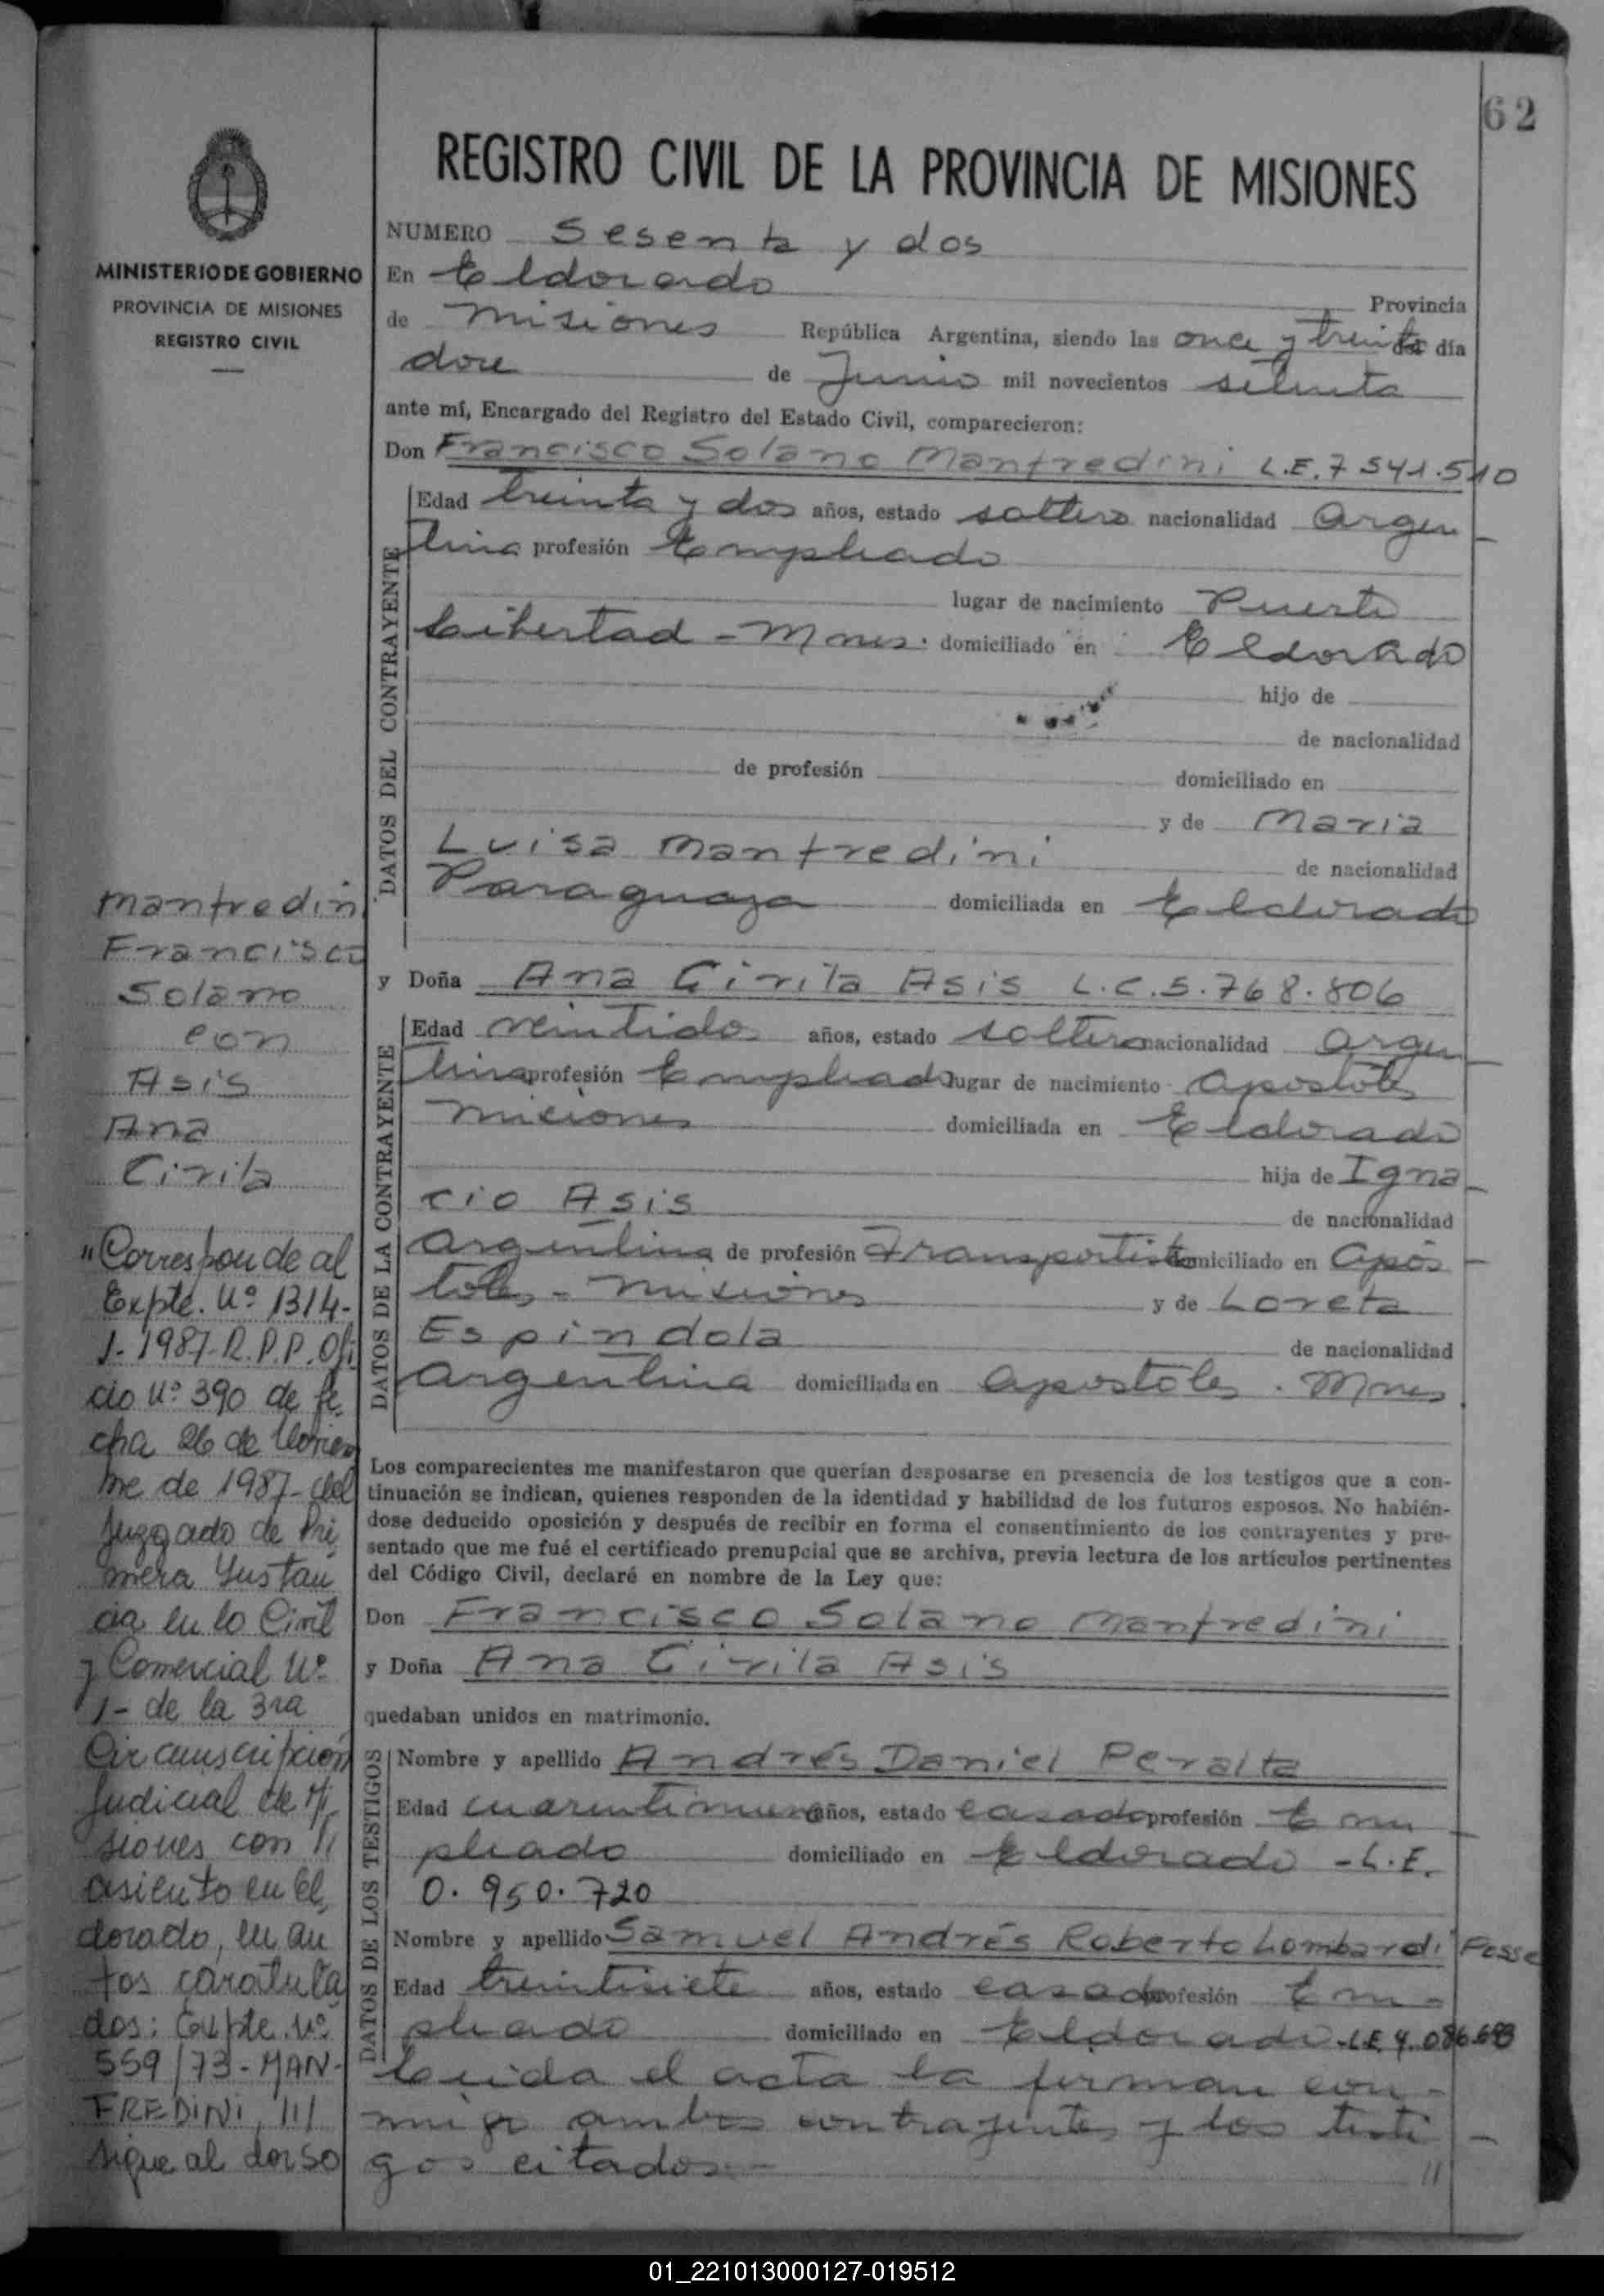 62
REGISTRO CIVIL DE LA PROVINCIA DE MISIONES
MINISTERIO DE GOBIERNO
PROVINCIA DE MISIONES
REGISTRO CIVIL
NUMERO Sesenta y dos
En Eldorado Provincia
de Misiones República Argentina, siendo las once y treinta del día
doce de Junio mil novecientos setenta
ante mí, Encargado del Registro del Estado Civil, comparecieron:
Don Francisco Solano Manfredini L.E. 7 541.510
DATOS DEL CONTRAYENTE
Edad treinta y dos años, estado soltero nacionalidad Argen
tina profesión Empleado
lugar de nacimiento Puerto
Libertad - Mnes. domiciliado en Eldorado
hijo de
de nacionalidad
de profesión domiciliado en
y de Maria
Luisa Manfredini de nacionalidad
Paraguaya domiciliada en Eldorado
y Doña Ana Cirila Asis L.C. 5.768.806
DATOS DE LA CONTRAYENTE
Edad veintidos años, estado soltera nacionalidad Argen
tina profesión Empleada lugar de nacimiento Apostoles
Misiones domiciliada en Eldorado
hija de Igna
cio Asis de nacionalidad
Argentina de profesión Transportista domiciliado en Apos
toles - Misiones y de Loreta
Espindola de nacionalidad
Argentina domiciliada en Apostoles . Mnes
Los comparecientes me manifestaron que querían desposarse en presencia de los testigos que a con-
tinuación se indican, quienes responden de la identidad y habilidad de los futuros esposos. No habién-
dose deducido oposición y después de recibir en forma el consentimiento de los contrayentes y pre-
sentado que me fué el certificado prenupcial que se archiva, previa lectura de los artículos pertinentes
del Código Civil, declaré en nombre de la Ley que:
Don Francisco Solano Manfredini
y Doña Ana Cirila Asis
quedaban unidos en matrimonio.
DATOS DE LOS TESTIGOS
Nombre y apellido Andrés Daniel Peralta
Edad cuarentinueve años, estado casado profesión Em
pleado domiciliado en Eldorado - L.E.
0.950.720
Nombre y apellido Samuel Andrés Roberto Lombardi Posse
Edad treintisiete años, estado casado profesión Em-
pleado domiciliado en Eldorado - L.E. 4.086.693
Leida el acta la firman con-
migo ambos contrayentes y los testi
gos citados.- //
Manfredini
Francisco
Solano
con
Asis
Ana
Cirila
"Corresponde al
Expte. Nº 1314-
J- 1987- R.P.P. Ofi
cio Nº 390 de fe
cha 26 de Noviem
bre de 1987- del
Juzgado de Pri
mera Instan
cia en lo Civil
y Comercial Nº
1- de la 3ra
Circunscripción
Judicial de Mi
siones con
asiento en El
dorado, en au
tos caratula
dos: Expte. Nº
559/73- MAN-
FREDINI, ///
sigue al dorso
01_221013000127-019512